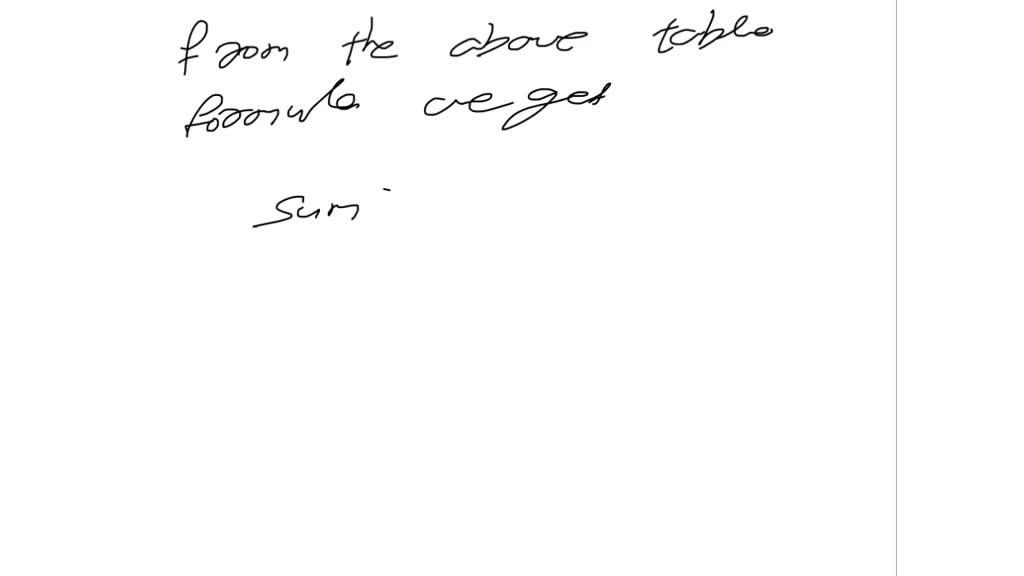 from the above table
formula we get
sum